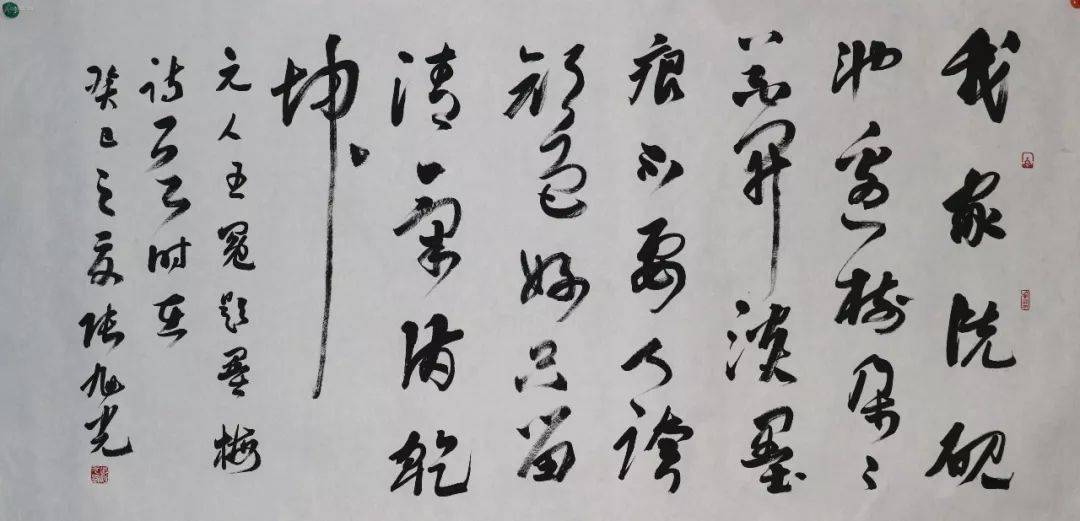 我家洗砚
池邊樹朵々
花開淡墨
痕不要人誇
顏色好只留
清氣满乾
坤
元人王冕题墨梅
诗云云时在
癸巳之夏张旭光